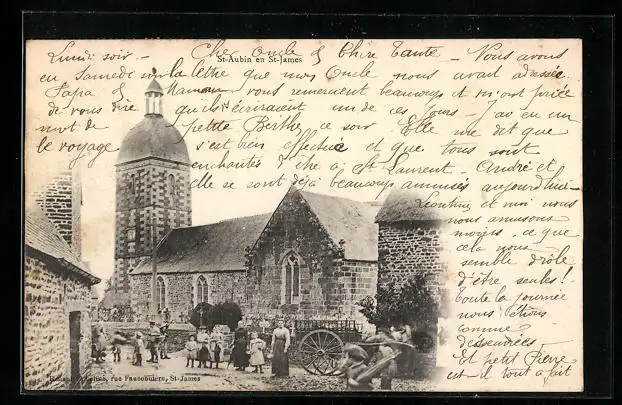 St-Aubin en St-James
Lundi soir - Che Oncle & Chère Tante - Vous avez
eu Samedi la lettre que mon Oncle nous avait adressée.
Papa & Maman vous remercient beaucoup et m'ont priée
de vous dire qu'ils écriraient un de ces jours - J'ai eu un
mot de petite Berthe ce soir. Elle me dit que
le voyage s'est bien effectué et que tous sont
enchantés d'être à St Laurent - André et
elle se sont déjà beaucoup amusés aujourd'hui -
Léontine et moi nous
nous amusons
moins, ce que
cela nous
semble drôle
d'être seules!
Toute la journée
nous étions
comme
désœuvrées
Et petit Pierre
est-il tout à fait
rue Fauconnière, St-James